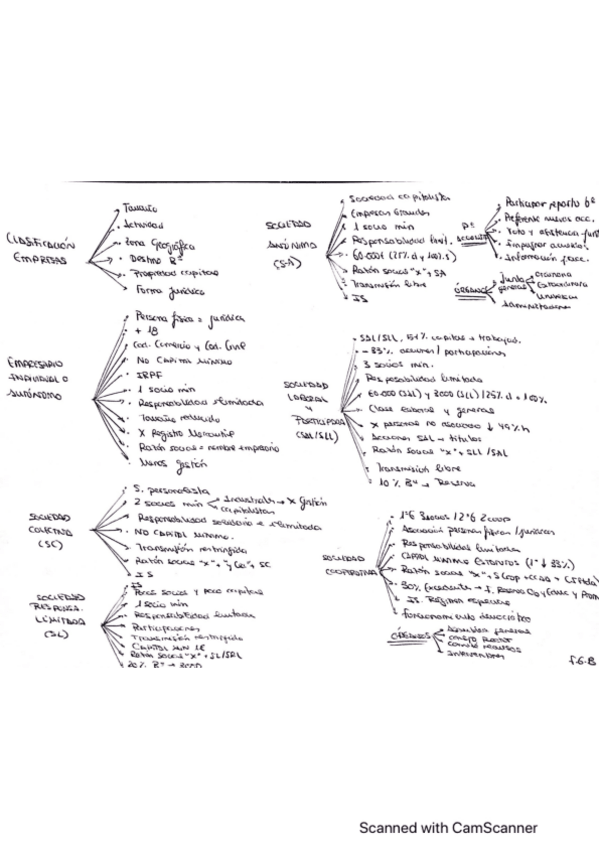 CLASIFICACIÓN
EMPRESAS
Tamaño
Actividad
Zona Geográfica
Destino Bº
Propiedad capital
Forma jurídica
EMPRESARIO
INDIVIDUAL O
AUTÓNOMO
Persona física = jurídica
+ 18
Cod. Comercio y Cod. Civil
NO CAPITAL MÍNIMO
IRPF
1 socio min
Responsabilidad ilimitada
Tamaño reducido
X Registro Mercantil
Razón social = nombre empresario
Menos gestión
SOCIEDAD
COLECTIVA
(SC)
S. personalista
2 socios min
Industriales → X gestión
capitalistas
Responsabilidad solidaria e ilimitada
NO CAPITAL MÍNIMO.
Transmisión restringida
Razón social "x" + "y Cía" + SC
IS
SOCIEDAD
RESPONSA.
LIMITADA
(SL)
Pocos socios y poco capital
1 socio min
Responsabilidad limitada
Participaciones
Transmisión restringida
CAPITAL MIN 1€
Razón social "x" + SL/SRL
20% Bº → 3000
SOCIEDAD
ANÓNIMA
(SA)
Sociedad capitalista
Empresas Grandes
1 socio min
Responsabilidad limit.
60.000€ (25% d y 100% s)
Razón social "x" + SA
Transmisión libre
IS
Participar reparto bº
Preferente nuevas acc.
Voto y asistencia junt
Impugnar acuerdos
Información
ÓRGANOS
Junta
general
ordinaria
extraordinaria
universal
Administradores
SOCIEDAD
LABORAL
Y
PARTICIPADA
(SAL/SLL)
SAL/SLL, 51% capital → trabajad.
- 33% acciones / participaciones
3 socios min.
Responsabilidad limitada
Clase laboral y general
X personas no asociado ↓ 49% h
Acciones SAL → títulos
Razón social "x" + SLL/SAL
Transmisión libre
10% Bº → Reserva
SOCIEDAD
COOPERATIVA
1ºG 3 socios / 2ºG 2 coop
Asociación personas físicas/jurídicas
Responsabilidad limitada
CAPITAL MÍNIMO ESTATUTOS (1º ↓ 33%)
IS. Régimen especial
Funcionamiento democrático
ÓRGANOS
Asamblea general
consejo rector
comité recursos
Interventores
F.G.B
Scanned with CamScanner